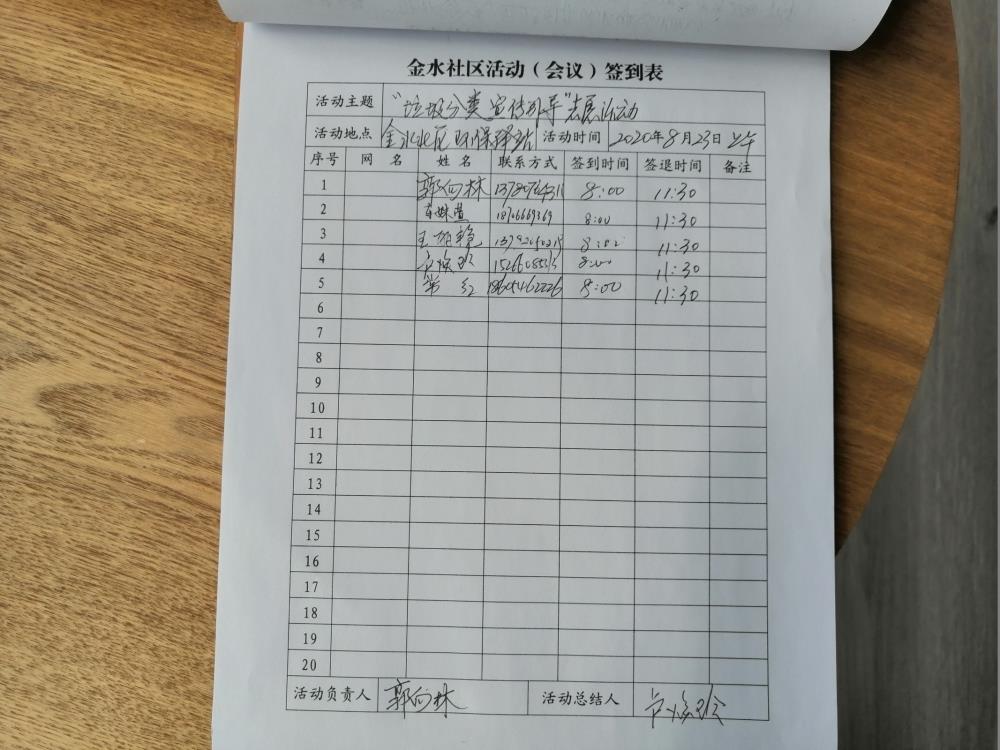 金水社区活动（会议）签到表
活动主题 "垃圾分类宣传引导"志愿活动
活动地点 金水社区环保驿站 活动时间 2020年8月23日 上午
序号 网 名 姓 名 联系方式 签到时间 签退时间 备注
1 郭向林 8:00 11:30
2 18706669369 8:00 11:30
3 11:30
4 8:00 11:30
5 常红 8:00 11:30
6
7
8
9
10
11
12
13
14
15
16
17
18
19
20
活动负责人 郭向林 活动总结人